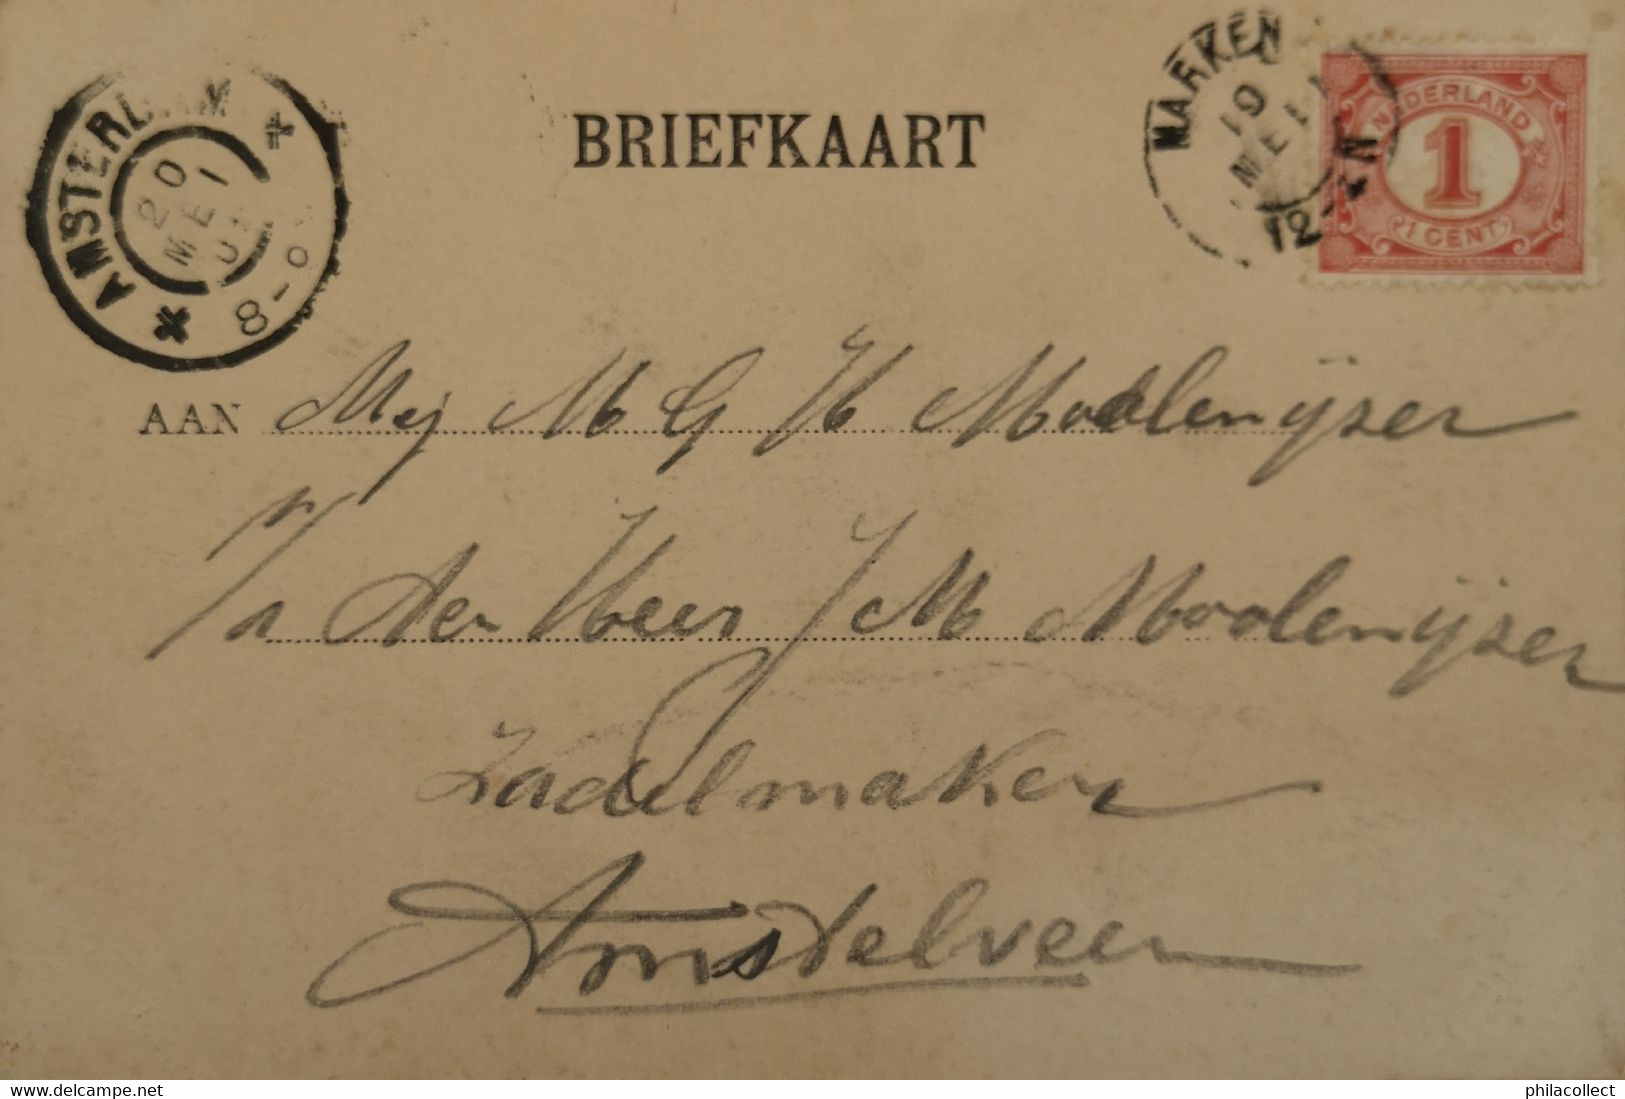 AMSTERDAM
20
MEI
8-
BRIEFKAART
MARKEN
19
MEI
12-
N
NEDERLAND
1
1 CENT
AAN Mej M G H Moolenijzer
p/a den Heer J M Moolenijzer
Zadelmaker
Amstelveen
www.delcampe.net
philacollect